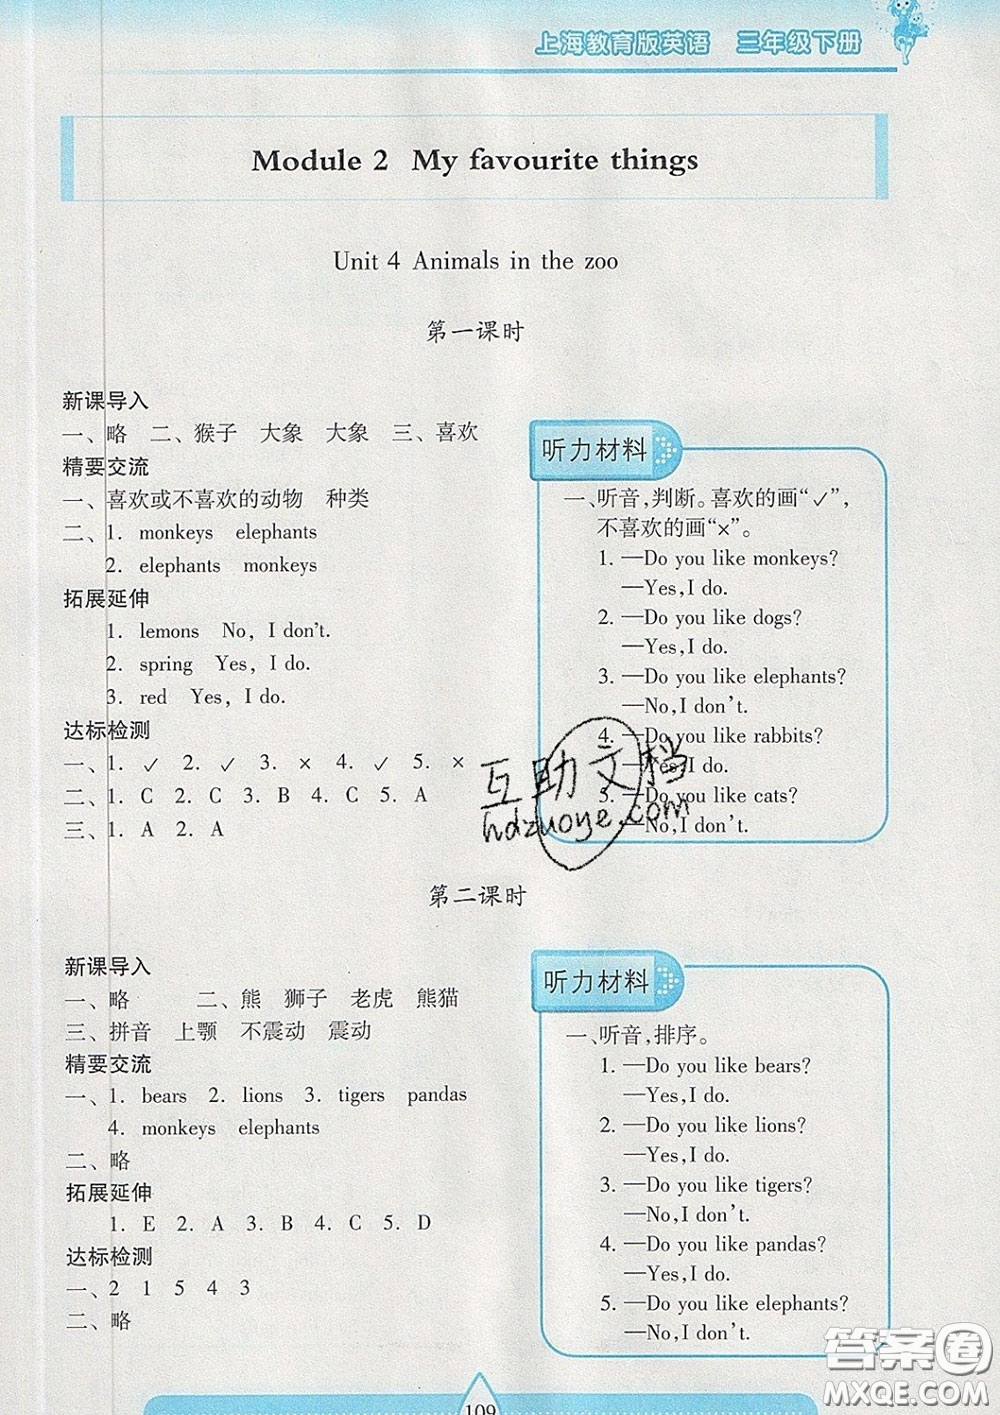 上海教育版英语 三年级下册
Module 2 My favourite things
Unit 4 Animals in the zoo
第一课时
新课导入
一、略 二、猴子 大象 大象 三、喜欢
精要交流
一、喜欢或不喜欢的动物 种类
二、1. monkeys elephants
2. elephants monkeys
拓展延伸
1. lemons No, I don't.
2. spring Yes, I do.
3. red Yes, I do.
达标检测
一、1. ✓ 2. ✓ 3. × 4. ✓ 5. ×
二、1. C 2. C 3. B 4. C 5. A
三、1. A 2. A
听力材料
一、听音,判断。喜欢的画“✓”,
不喜欢的画“×”。
1. —Do you like monkeys?
—Yes,I do.
2. —Do you like dogs?
—Yes,I do.
3. —Do you like elephants?
—No,I don't.
4. —Do you like rabbits?
—Yes,I do.
5. —Do you like cats?
—No,I don't.
互助文档
hdzuoye.com
第二课时
新课导入
一、略 二、熊 狮子 老虎 熊猫
三、拼音 上颚 不震动 震动
精要交流
一、1. bears 2. lions 3. tigers pandas
4. monkeys elephants
二、略
拓展延伸
1. E 2. A 3. B 4. C 5. D
达标检测
一、2 1 5 4 3
二、略
听力材料
一、听音,排序。
1. —Do you like bears?
—Yes,I do.
2. —Do you like lions?
—Yes,I do.
3. —Do you like tigers?
—No,I don't.
4. —Do you like pandas?
—Yes,I do.
5. —Do you like elephants?
—No,I don't.
109
答案圈
MXQE.COM